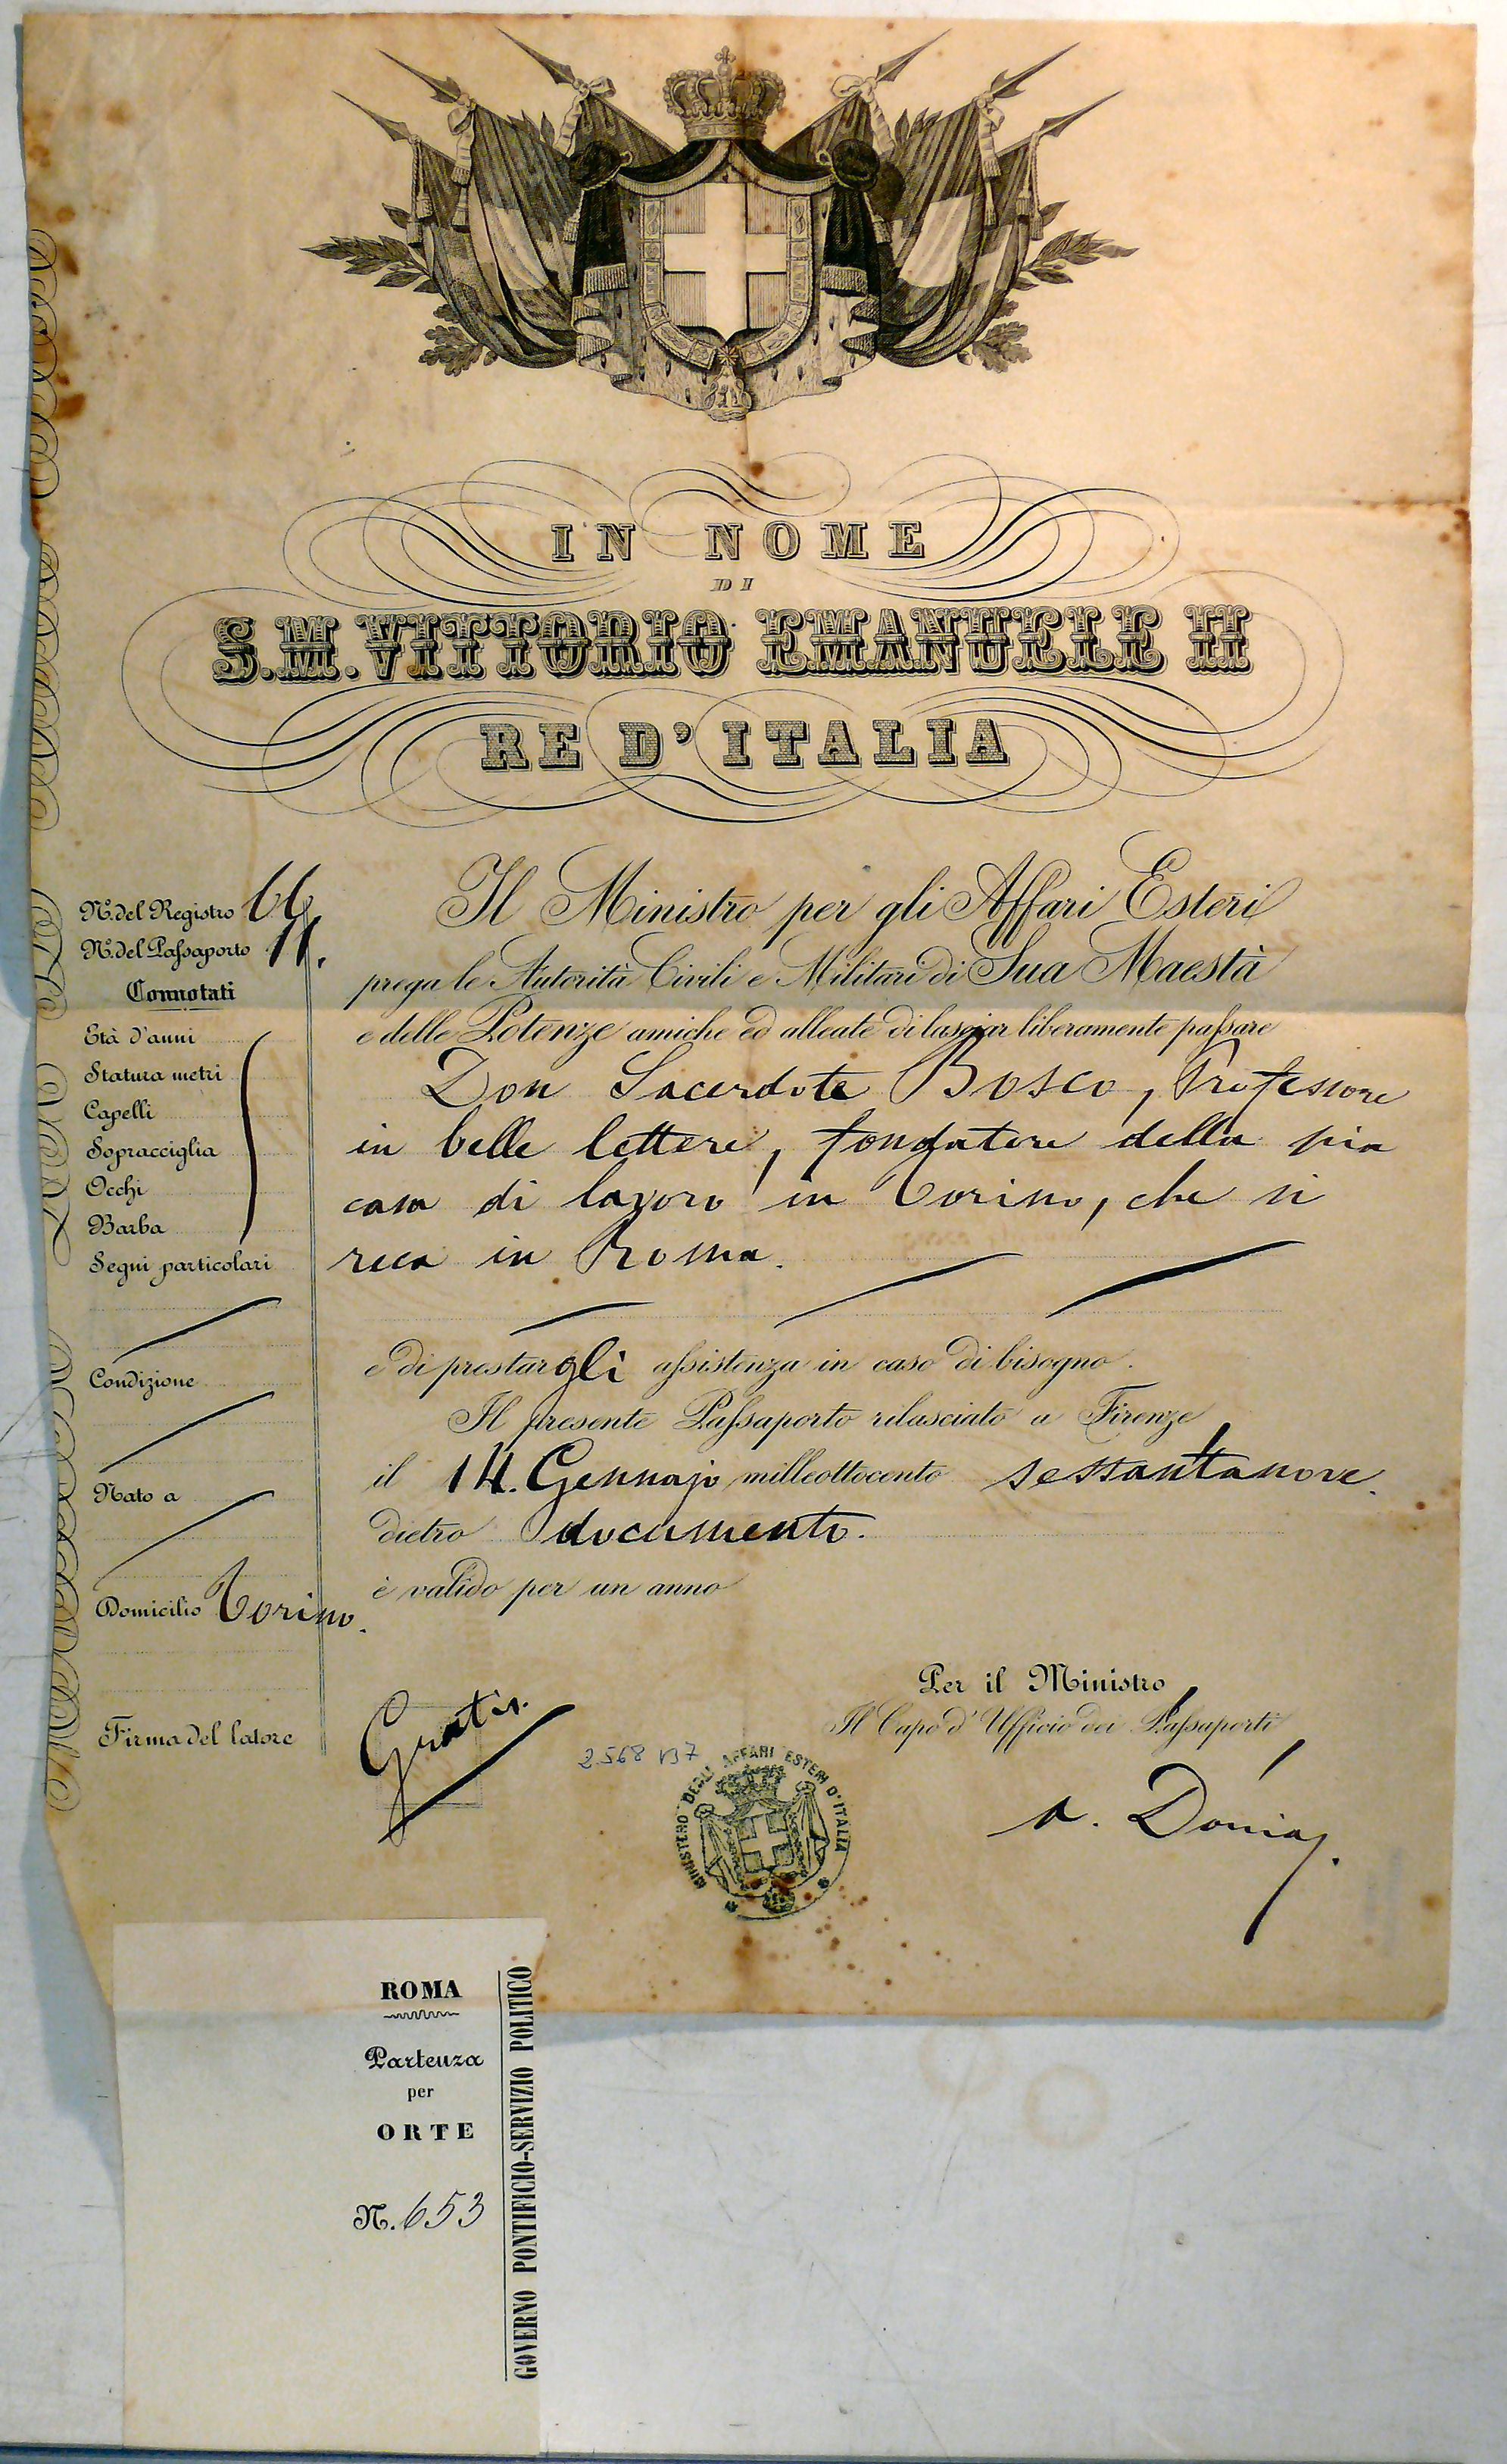 IN NOME
DI
S.M. VITTORIO EMANUELE II
RE D'ITALIA
N.º del Registro 66.
N.º del Passaporto 11.
Connotati
Età d'anni
Statura metri
Capelli
Sopracciglia
Occhi
Barba
Segni particolari
Condizione
Nato a
Domicilio Torino.
Firma del latore
Il Ministro per gli Affari Esteri
prega le Autorità Civili e Militari di Sua Maestà
e delle Potenze amiche ed alleate di lasciar liberamente passare
Don Sacerdote Bosco, Professore
in belle lettere, fondatore della pia
casa di lavoro in Torino, che si
reca in Roma.
e di prestargli assistenza in caso di bisogno.
Il presente Passaporto rilasciato a Firenze
il 14. Gennajo milleottocento sessantanove.
dietro documento.
è valido per un anno
Gratis.
Per il Ministro
Il Capo d'Ufficio dei Passaporti
2568 V37
MINISTERO DEGLI AFFARI ESTERI D'ITALIA
ROMA
Partenza
per
ORTE
N. 653
GOVERNO PONTIFICIO-SERVIZIO POLITICO